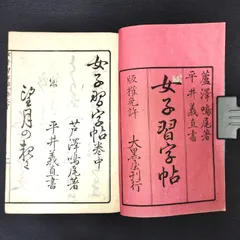 蘆澤鳴尾著
平井義直書
女子習字帖
版権免許
大黒屋刊行
女子習字帖巻中
芦澤鳴尾著
平井義直書
望月の